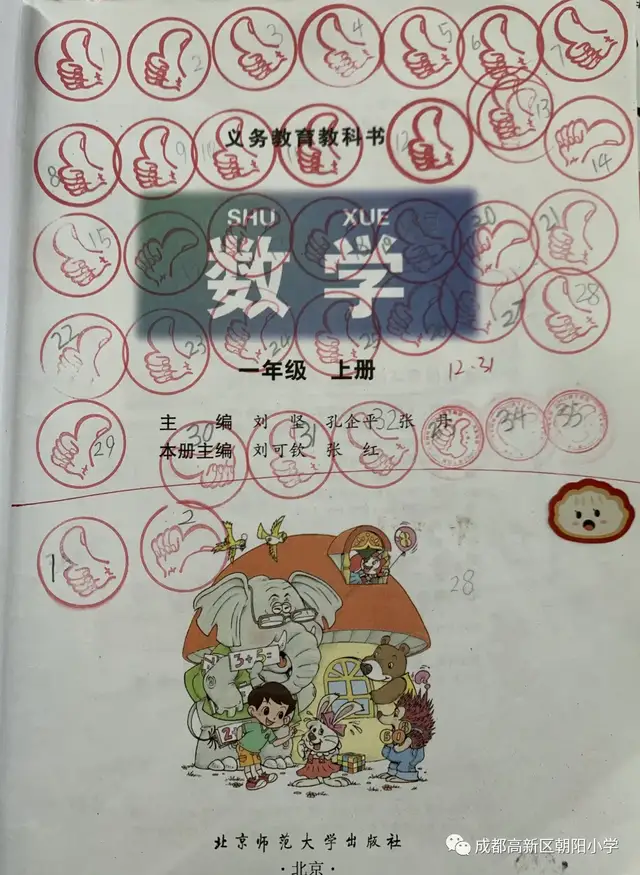 1 2 3 4 5 6 7
13
义务教育教科书
8 9 12 14
SHU XUE
15 20 21
数学
22 23 24 27 28
一年级 上册
12.31
主 编 刘 坚 孔企平 张 丹
29 30 31 32 34 35
本册主编 刘可钦 张 红
1 2
28
3+5=
2+
北京师范大学出版社
·北京·
成都高新区朝阳小学